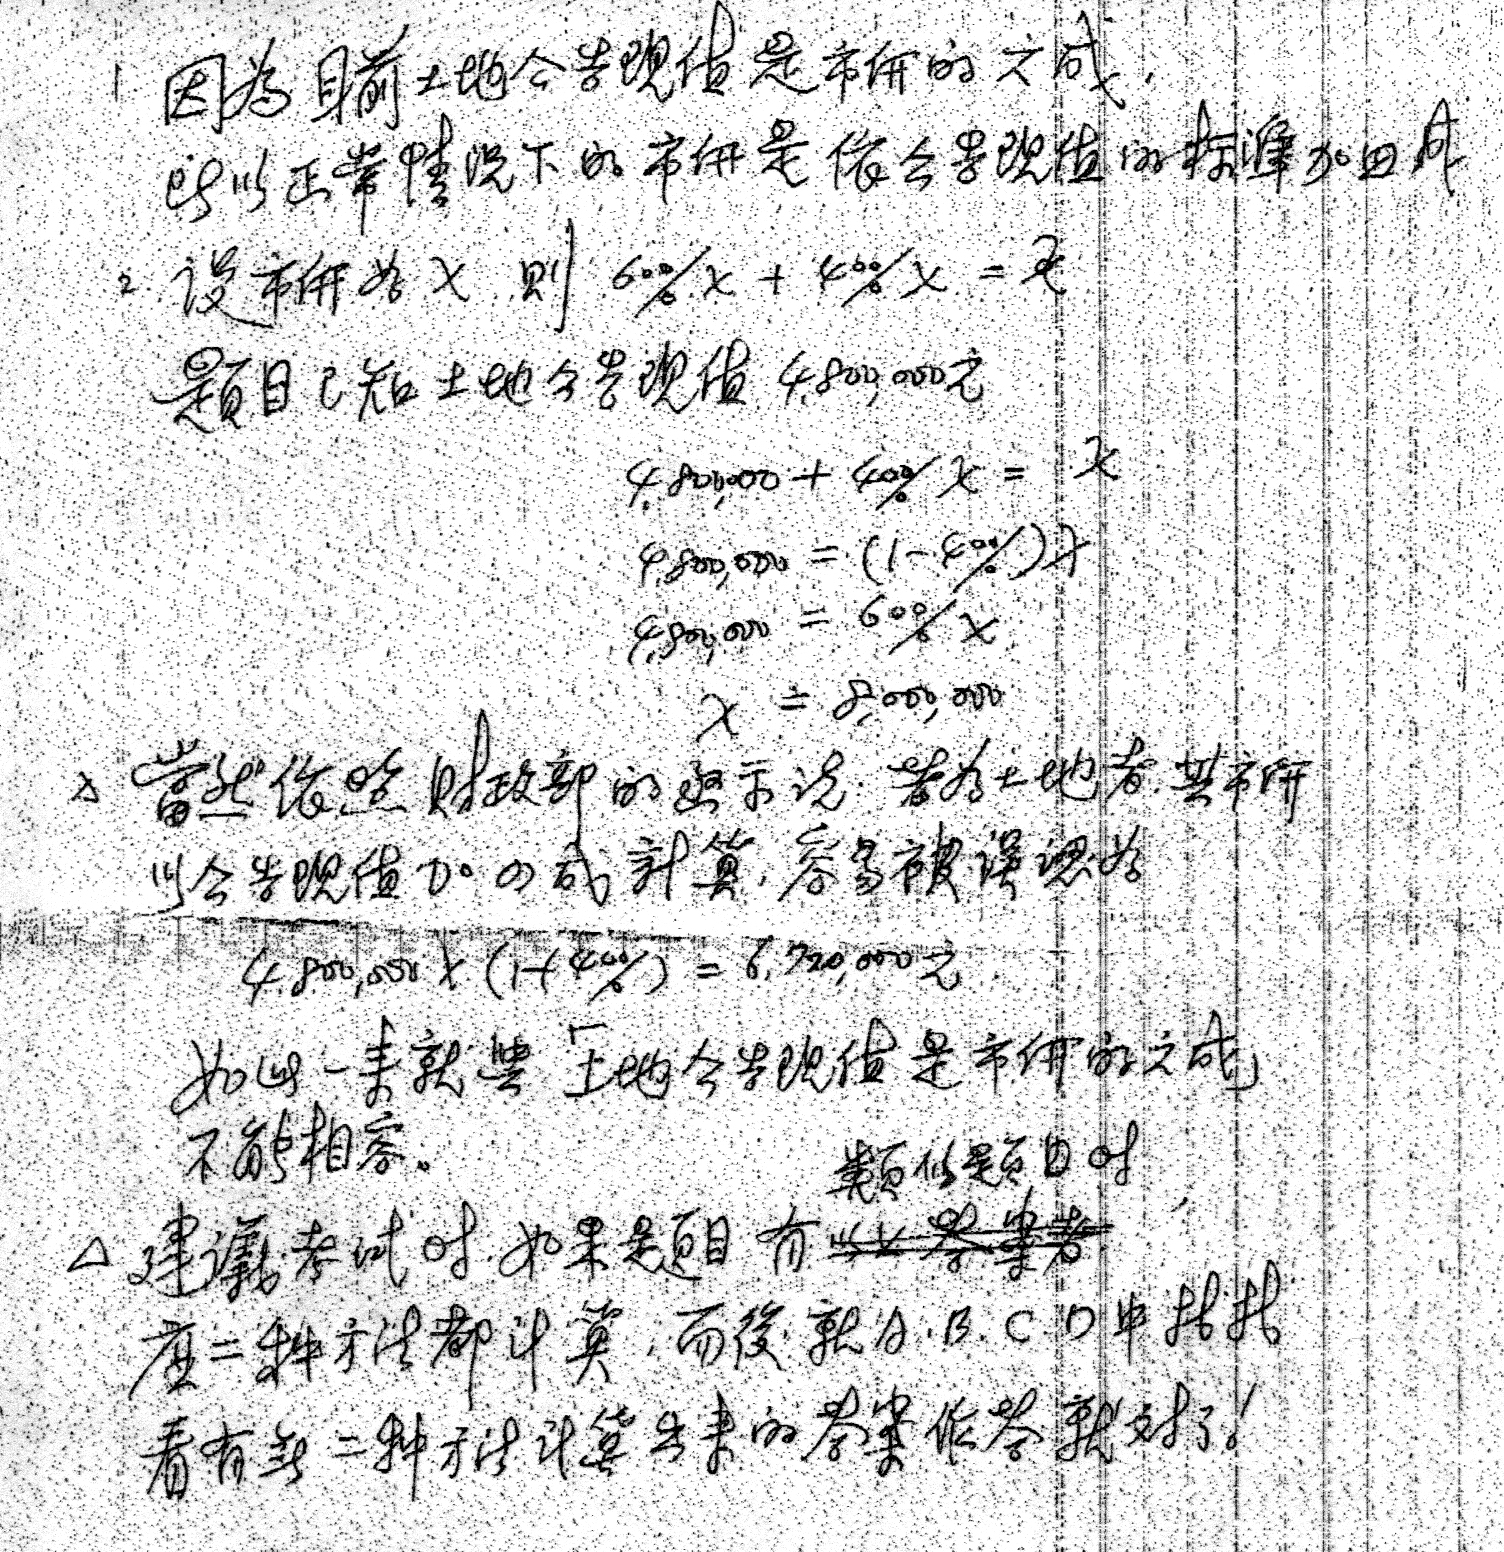 1 因為目前土地公告現值是市價的六成,
所以正常情況下的市價是依公告現值的標準加四成
2. 设市価為X 则 60%X + 40%X = X
題目已知土地公告現值 4,800,000元
4,800,000 + 40% X = X
4,800,000 = (1-40%)X
4,800,000 = 60% X
X = 8,000,000
△ 當然依照財政部的函示说. 若為土地者.其市価
以公告現值加四成計算,容易被误認為
4,800,000 X (1+40%) = 6,720,000元
如此一来就與「土地公告現值是市価的六成」
不能相容。
類似題目时
△ 建議考试时.如果題目有
應二种方法都计算.而後就A.B.C.D中找找
看有無二种方法计算出来的答案作答就对了!